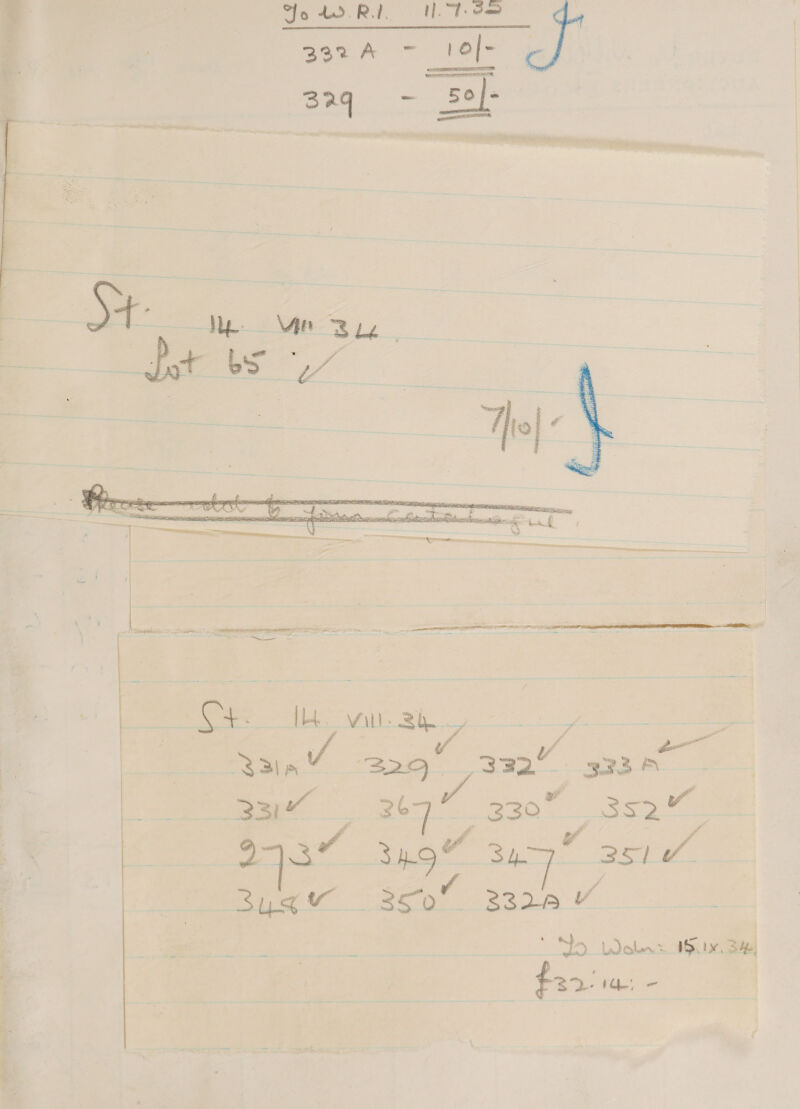 To W.R.I. 11.7.35
332 A - 10/-
329 - 50/-
St. 14 VIII 34
Lot 65 ✓
7/10/-
Please add to your catalogue.
St. 14 VIII. 34
331A ✓ 329 ✓ 332 ✓ 333 A ✓
331 ✓ 367 ✓ 330 ✓ 352 ✓
273 ✓ 349 ✓ 347 ✓ 351 ✓
348 ✓ 350 ✓ 332A ✓
To Woln: 15.IX.34
£32:14:-